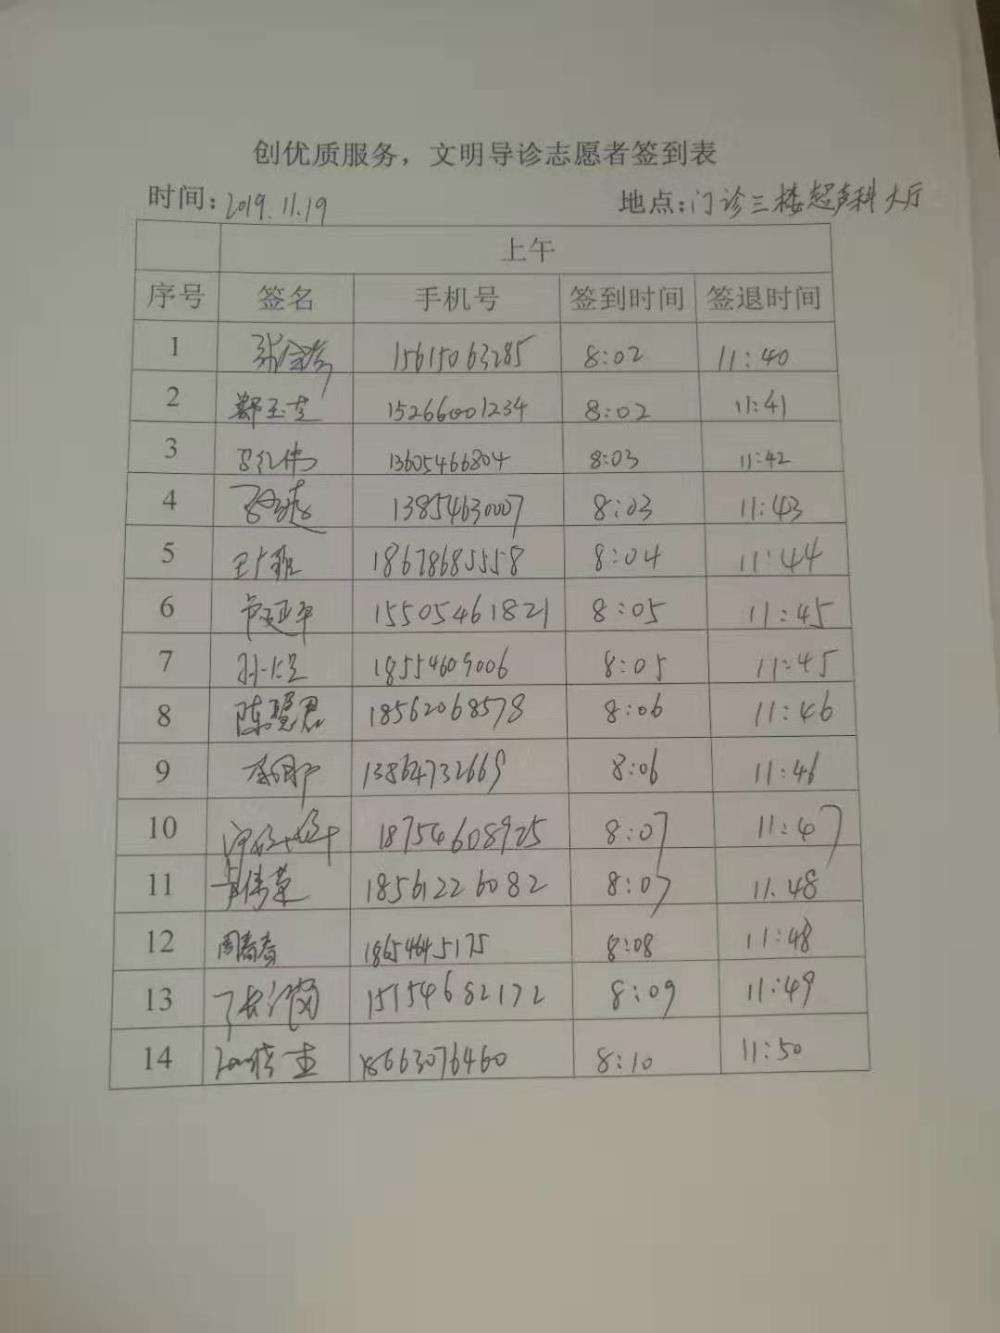 创优质服务，文明导诊志愿者签到表
时间：2019.11.19 地点：门诊三楼超声科大厅
上午
序号 签名 手机号 签到时间 签退时间
1 15615063285 8:02 11:40
2 郑玉芝 15266001234 8:02 11:41
3 13605466804 8:03 11:42
4 13854630007 8:03 11:43
5 18678685558 8:04 11:44
6 15505461821 8:05 11:45
7 18554609006 8:05 11:45
8 陈慧君 18562068578 8:06 11:46
9 13864732669 8:06 11:46
10 18754608925 8:07 11:47
11 18561226082 8:07 11.48
12 周春春 18654645175 8:08 11:48
13 15154682172 8:09 11:49
14 18663076460 8:10 11:50